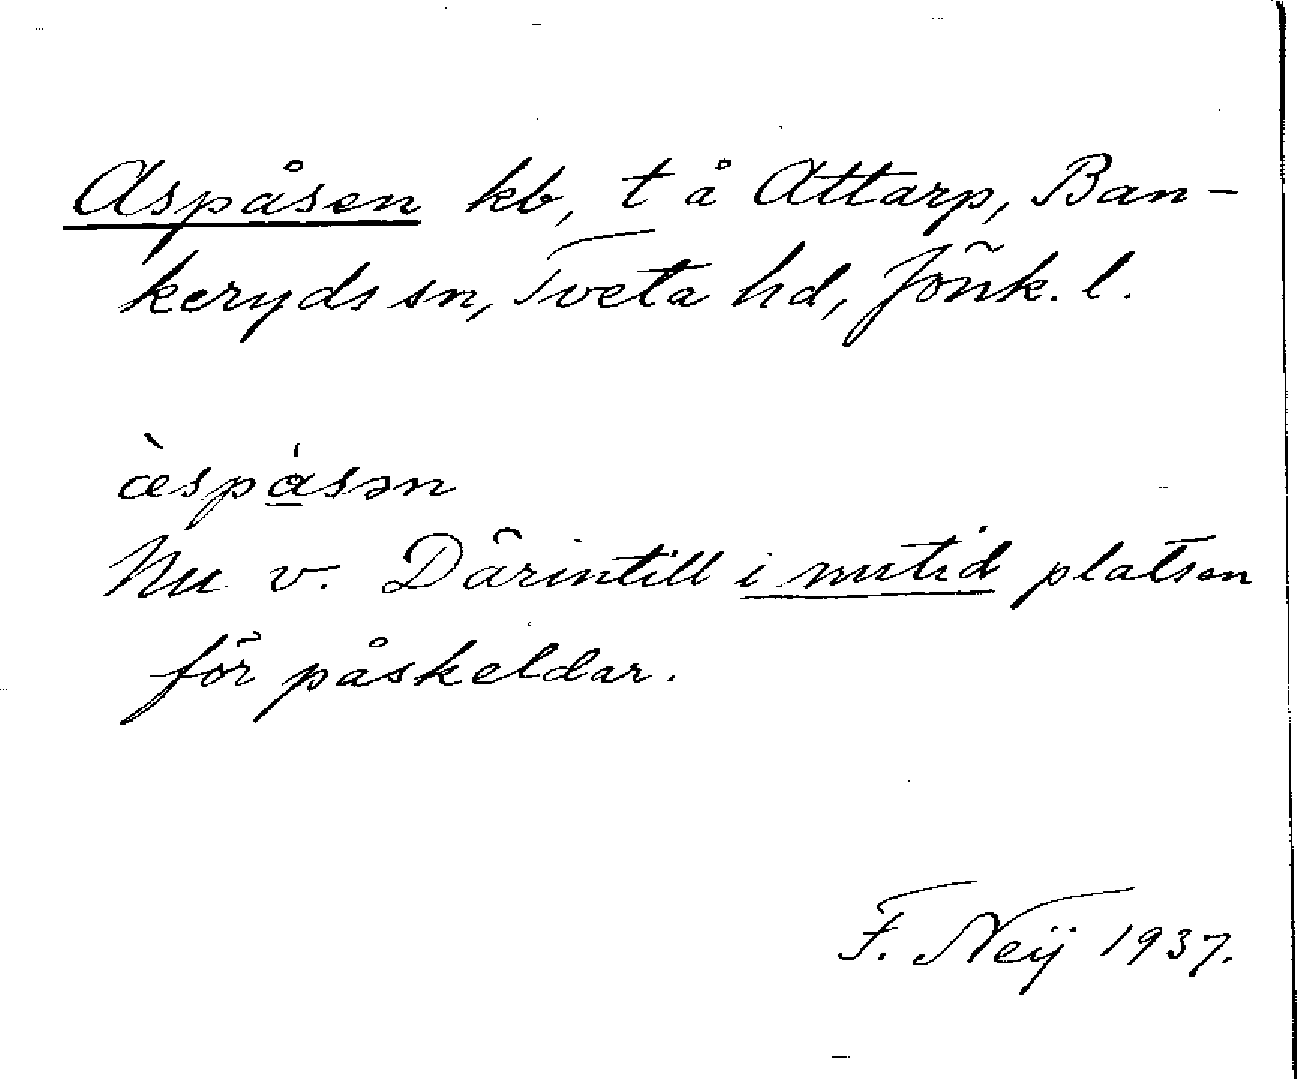 Aspåsen kb, t å Attarp, Ban-
keryds sn, Tveta hd, Jönk. l.
æ̀spȧ̲sən
Nu v. Därintill i nutid platsen
för påskeldar.
F. Neij 1937.